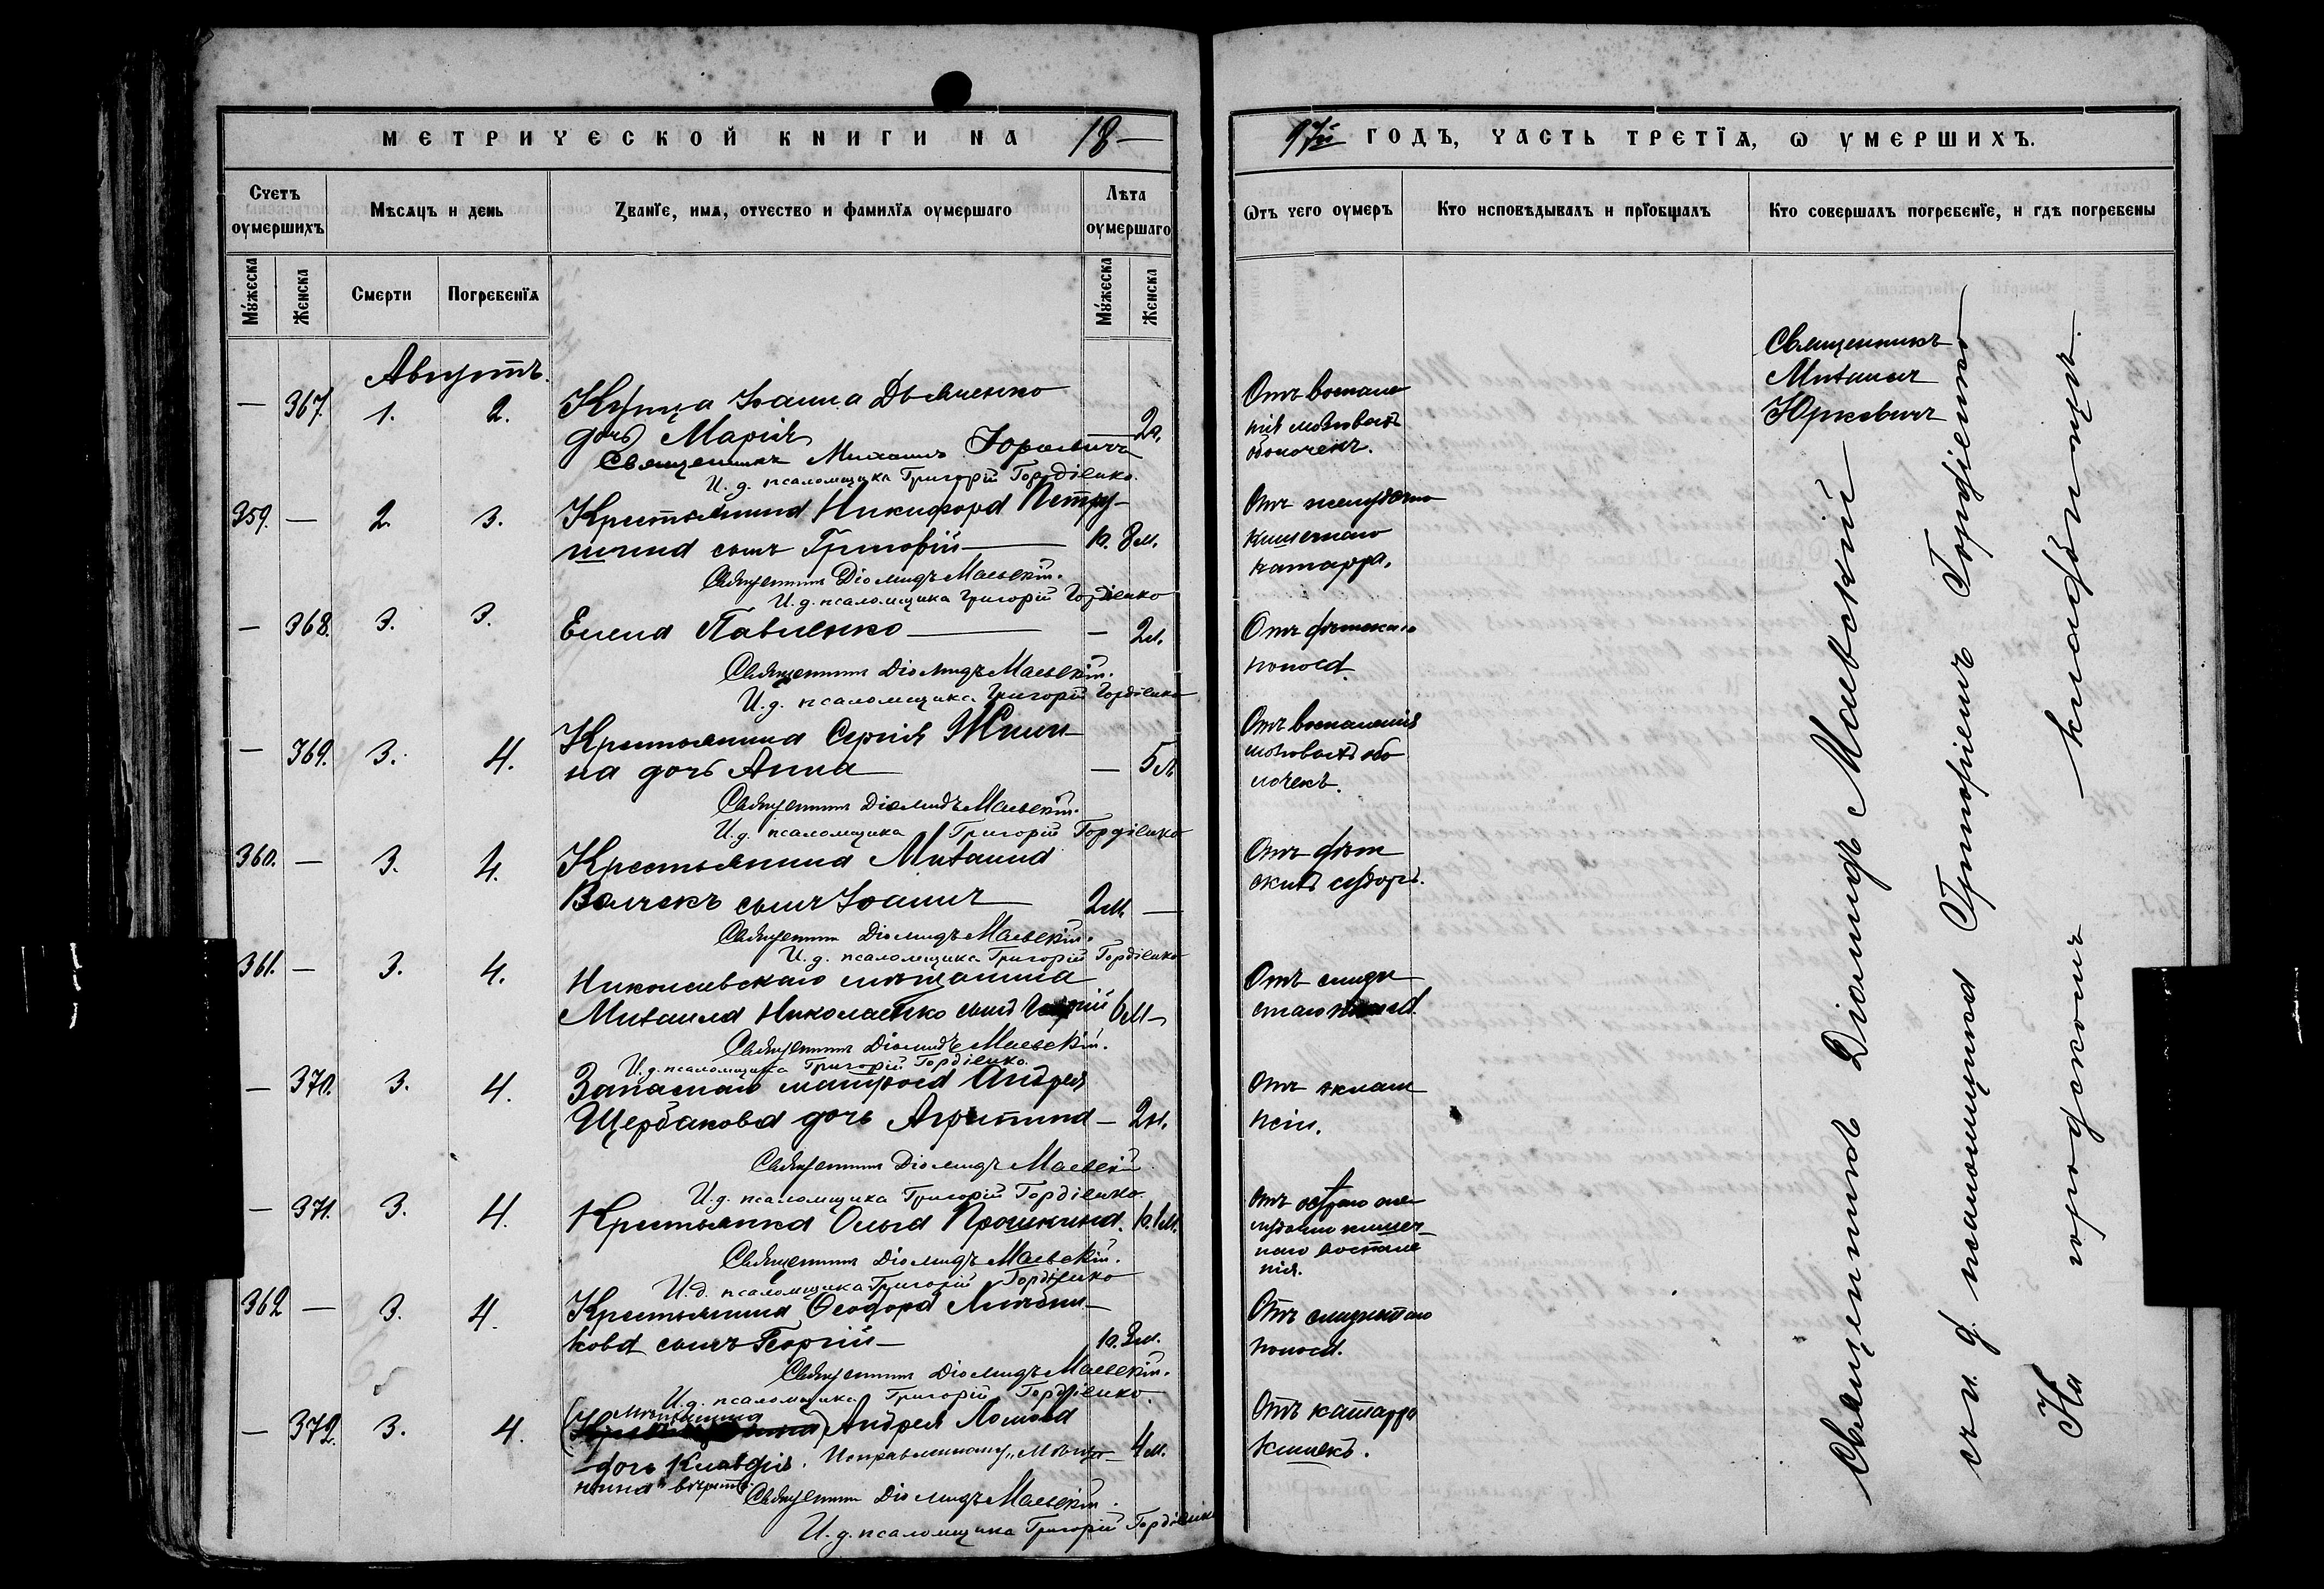 МЕТРИЧЕСКОЙ КНИГИ НА 18—
97й ГОДЪ, ЧАСТЬ ТРЕТІѦ, Ѡ УМЕРШИХЪ.
Счетъ оумершихъ
Мѣсяцъ и день
Званїе, имѧ, отчество и фамилїѧ оумершаго
Лѣта оумершаго
Отъ чего оумеръ
Кто исповѣдывалъ и прїобщалъ
Кто совершалъ погребенїе, и гдѣ погребены
Мужеска
Женска
Смерти
Погребенїѧ
Мужеска
Женска
Августъ.
— 367. 1. 2. Купца Іоанна Дьяченко
дочь Марія — 2
Священникъ Михаилъ Юркевичъ
И. д. псаломщика Григорій Гордіенко.
Отъ воспале
нія мозговыхъ
оболочекъ.
Священникъ
Михаилъ
Юркевичъ
359. — 2. 3. Крестьянина Никифора Петру-
шина сынъ Григорій — 1г. 8м.
Священникъ Діомидъ Маевскій.
И. д. псаломщика Григорій Гордіенко
Отъ желудочно
кишечнаго
катарра.
— 368. 3. 3. Елена Павленко — — 2м.
Священникъ Діомидъ Маевскій.
И. д. псаломщика Григорій Гордіенко
Отъ дѣтскаго
поноса.
— 369. 3. 4. Крестьянина Сергія
на дочь Анна — — 5
Священникъ Діомидъ Маевскій.
И. д. псаломщика Григорій Гордіенко
Отъ воспаленія
мозговыхъ обо
лочекъ.
360. — 3. 4. Крестьянина Михаила
Волчекъ сынъ Іоаннъ — 2м. —
Священникъ Діомидъ Маевскій.
И. д. псаломщика Григорій Гордіенко
Отъ дѣт
скихъ судорг.
361. — 3. 4. Николаевскаго мѣщанина
Михаила Николаенко сынъ 6м —
Священникъ Діомидъ Маевскій.
И. д. псаломщика Григорій Гордіенко.
Отъ слизи
стаго поноса.
— 370. 3. 4. Запаснаго матроса Андрея
Щербакова дочь Агрипина — 2м.
Священникъ Діомидъ Маевскій
И. д. псаломщика Григорій Гордіенко.
Отъ эклам
псіи.
— 371. 3. 4. Крестьянка Ольга Прошкина. 1г. 1м.
Священникъ Діомидъ Маевскій.
И. д. псаломщика Григорій Гордіенко
Отъ остраго же
лудочно кишеч-
наго воспале
нія.
362 — 3. 4. Крестьянина Ѳеодора
кова сынъ Георгій — 1г. 3м.
Священникъ Діомидъ Маевскій.
И. д. псаломщика Григорій Гордіенко.
Отъ слизистаго
поноса.
— 372. 3. 4. мѣщанина Андрея
дочь Клавдія. Исправленному „Мѣща- — 4м.
нина" вѣрить.
Священникъ Діомидъ Маевскій.
И. д. псаломщика Григорій Гордіенко
Отъ катарра
кишекъ.
Священникъ Діомидъ Маевскій —
съ и. д. псаломщика Григоріемъ Гордіенко —
На городскомъ — кладбищѣ.